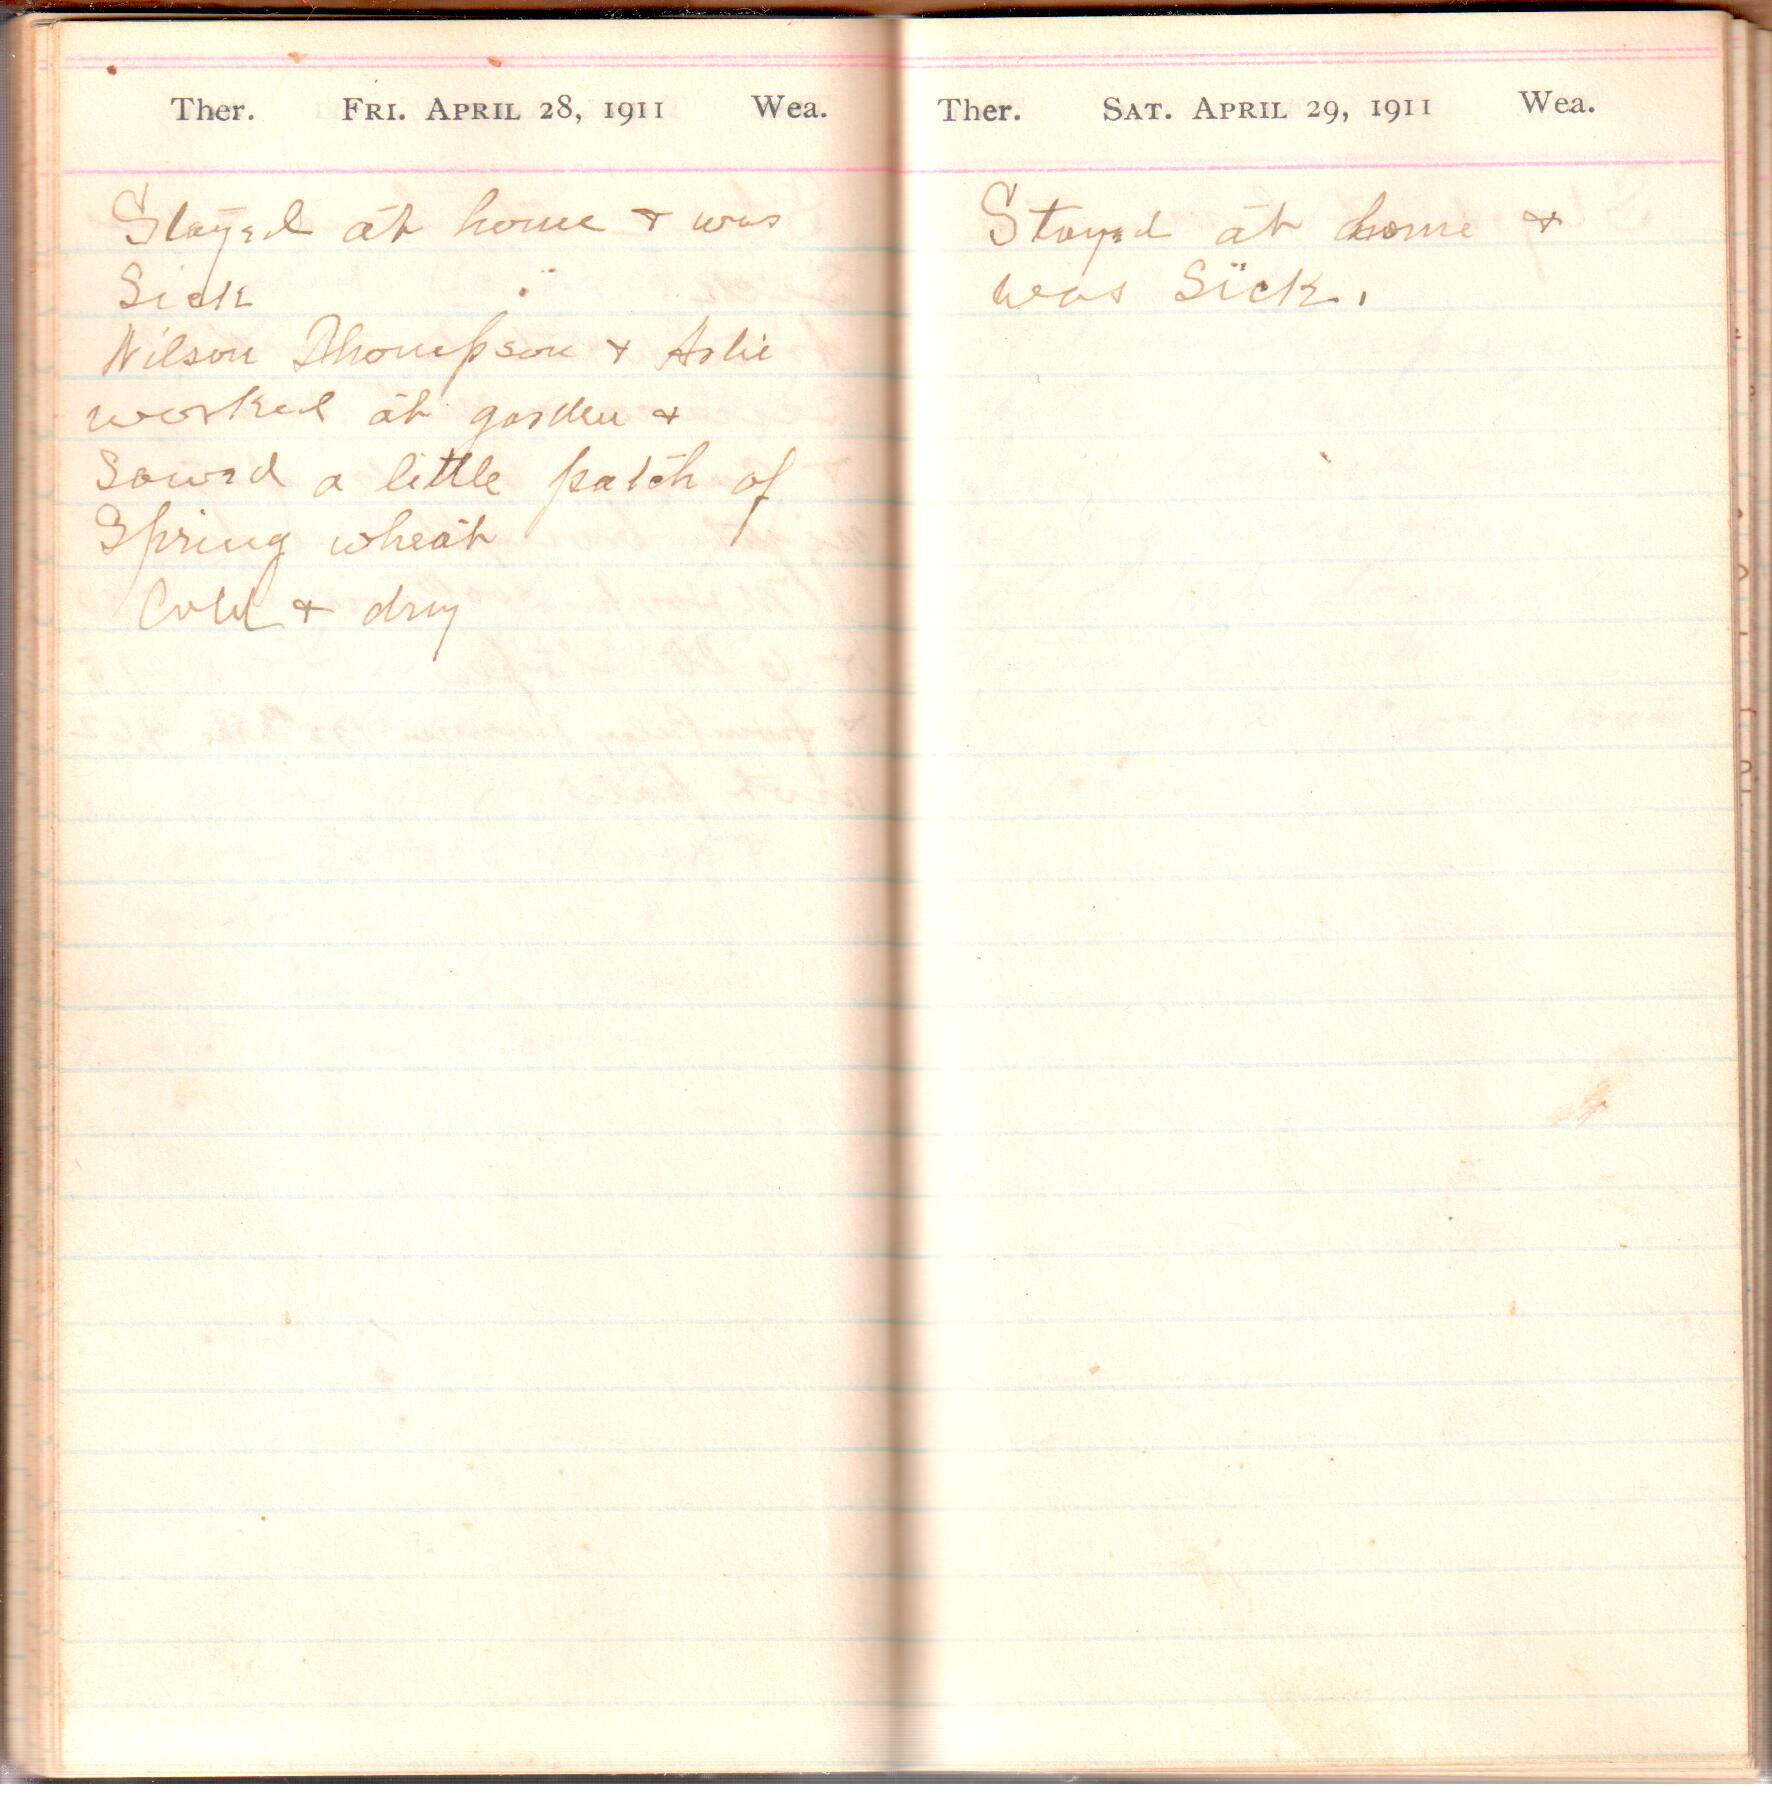 Ther. FRI. APRIL 28, 1911 Wea.
Stayed at home & was
Sick
Wilson Thompson & Arlie
worked at garden &
Sowed a little patch of
Spring wheat
Cold & dry
Ther. SAT. APRIL 29, 1911 Wea.
Stayed at home &
was Sick.